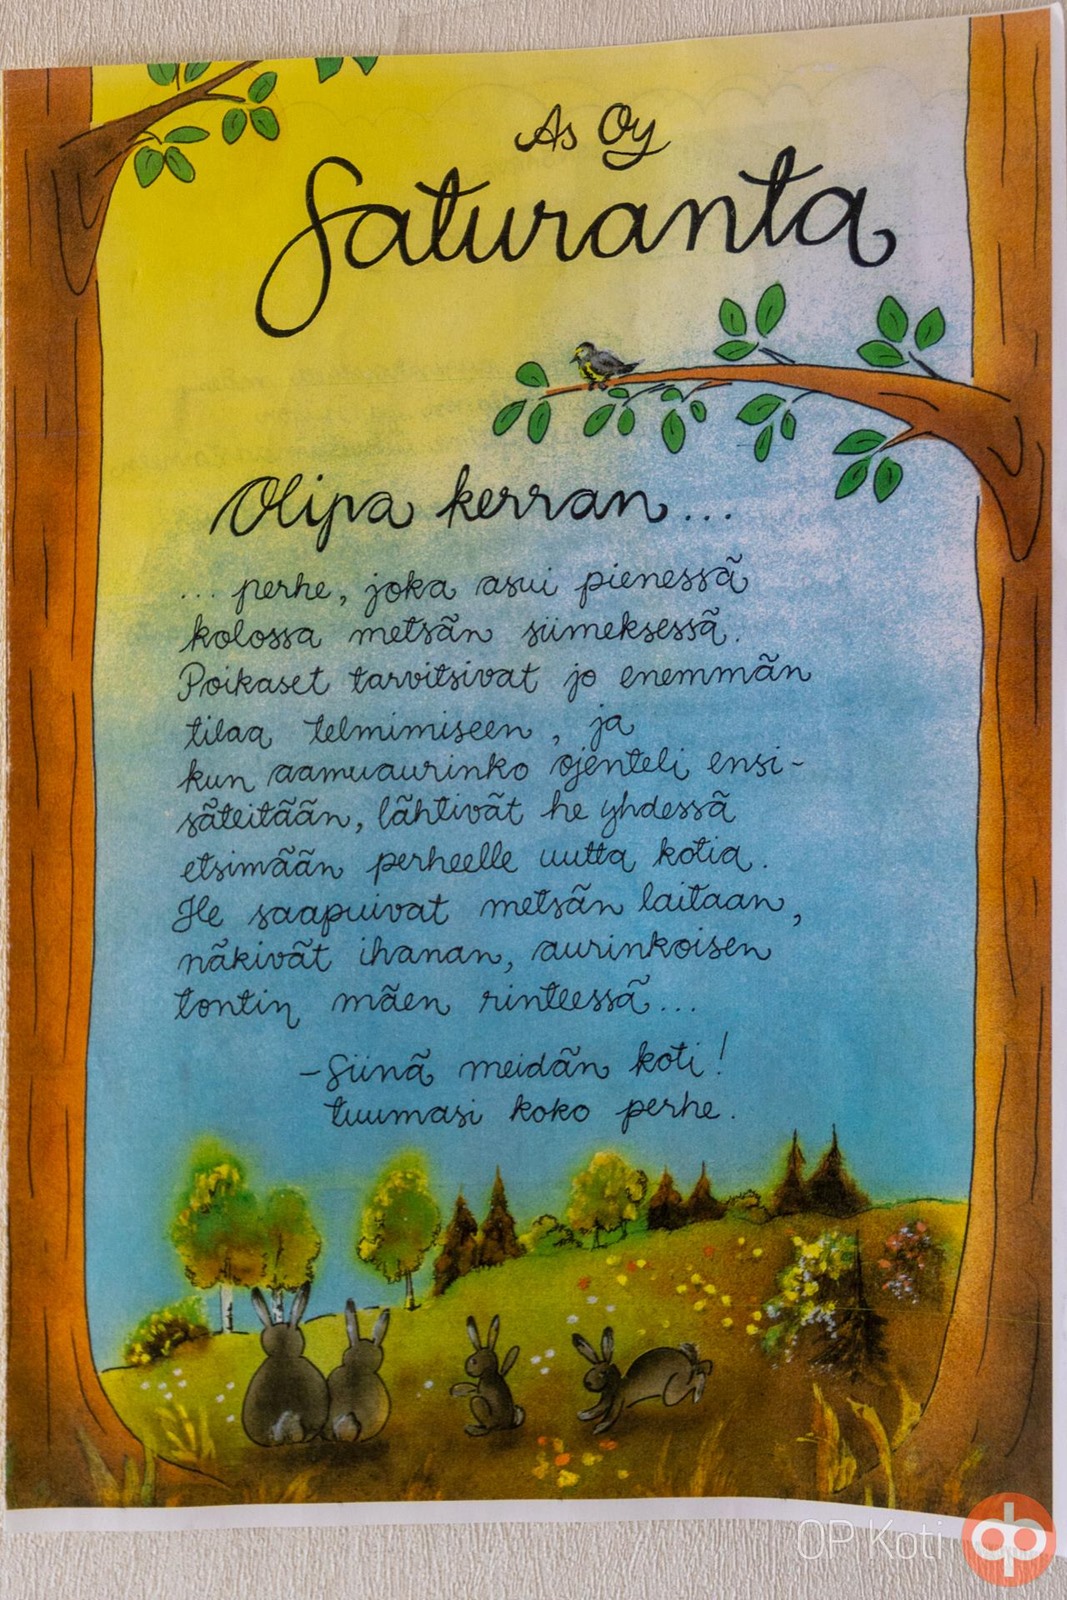 As Oy
Saturanta
Olipa kerran...
... perhe, joka asui pienessä
kolossa metsän siimeksessä.
Poikaset tarvitsivat jo enemmän
tilaa telmimiseen, ja
kun aamuaurinko ojenteli ensi-
säteitään, lähtivät he yhdessä
etsimään perheelle uutta kotia.
He saapuivat metsän laitaan,
näkivät ihanan, aurinkoisen
tontin mäen rinteessä...
-Siinä meidän koti!
tuumasi koko perhe.
OP Koti